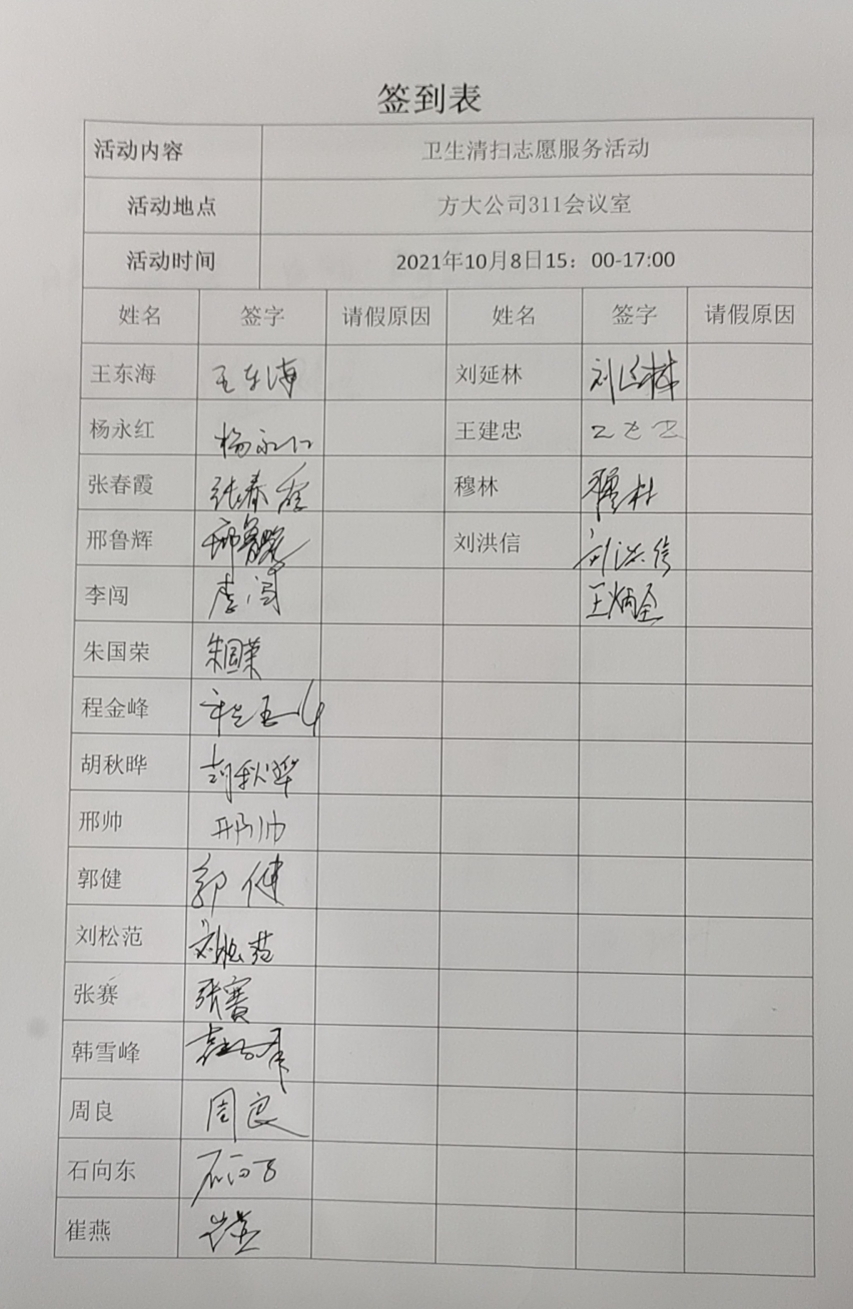 签到表
活动内容 卫生清扫志愿服务活动
活动地点 方大公司311会议室
活动时间 2021年10月8日15：00-17:00
姓名 签字 请假原因 姓名 签字 请假原因
王东海 王东海 刘延林 刘延林
杨永红 杨永红 王建忠
张春霞 张春霞 穆林 穆林
邢鲁辉 邢鲁辉 刘洪信 刘洪信
李闯 李闯 王炳全
朱国荣 朱国荣
程金峰 程金峰
胡秋晔 胡秋晔
邢帅 邢帅
郭健 郭健
刘松范 刘松范
张赛 张赛
韩雪峰
周良 周良
石向东 石向东
崔燕 崔燕